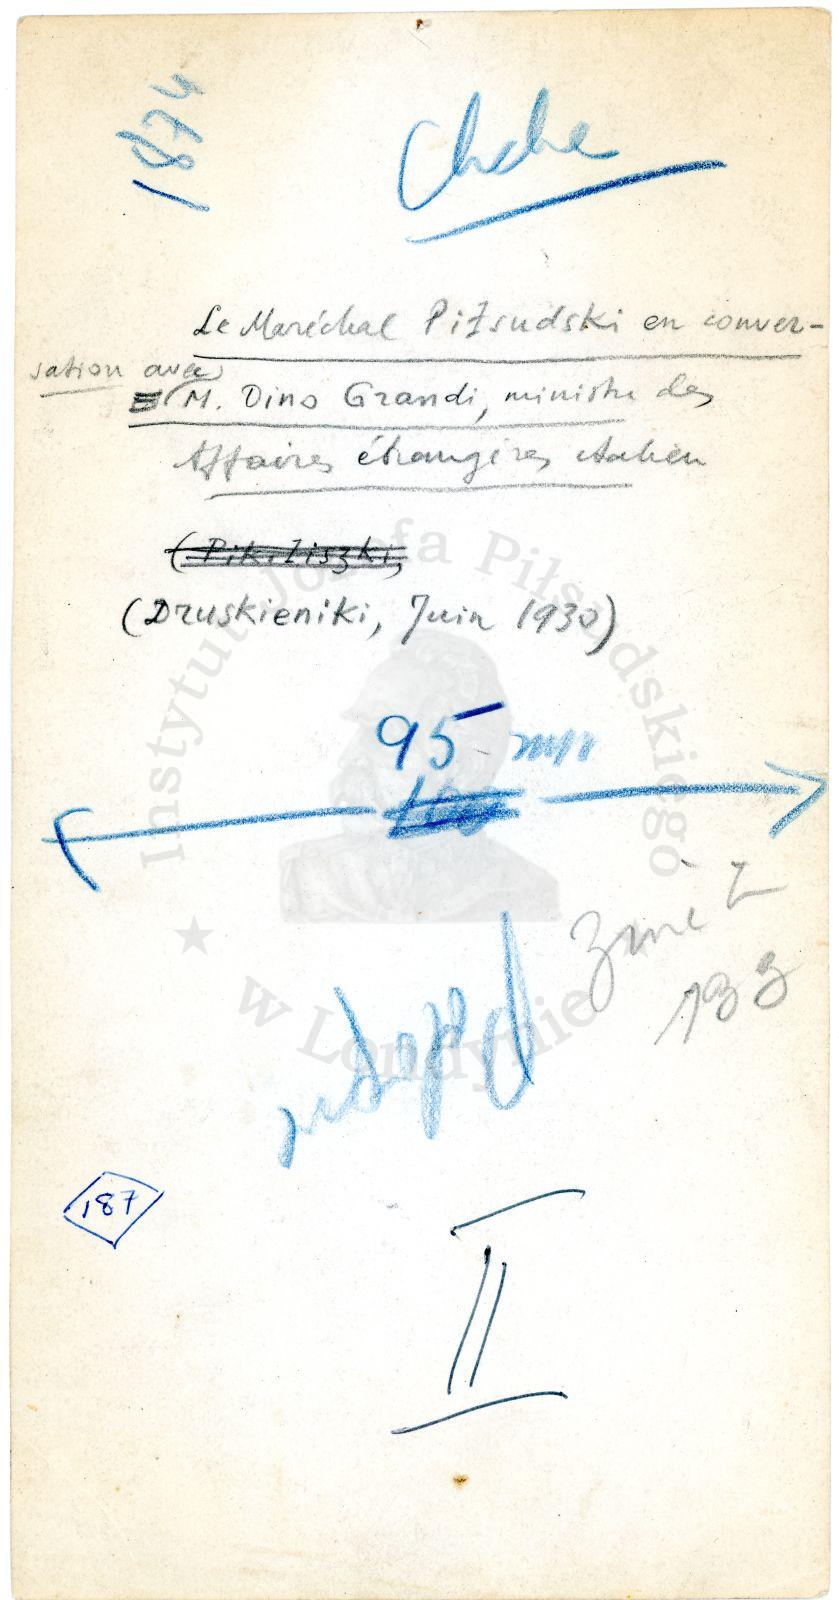 1874
Le Maréchal Piłsudski en conver-
sation avec
M. Dino Grandi, ministre des
Affaires étrangères italien
(Pikiliszki,
(Druskieniki, Juin 1930)
95 m/m
100
133
187
II
Instytut Józefa Piłsudskiego
w Londynie